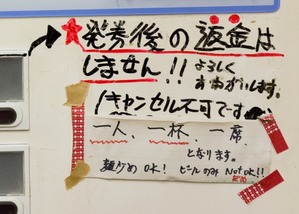 ★発券後の返金は
しません!!
よろしく
おねがいします。
キャンセル不可です
一人、一杯、一席
となります。
麺少なめ OK! ビールのみ Not OK!!